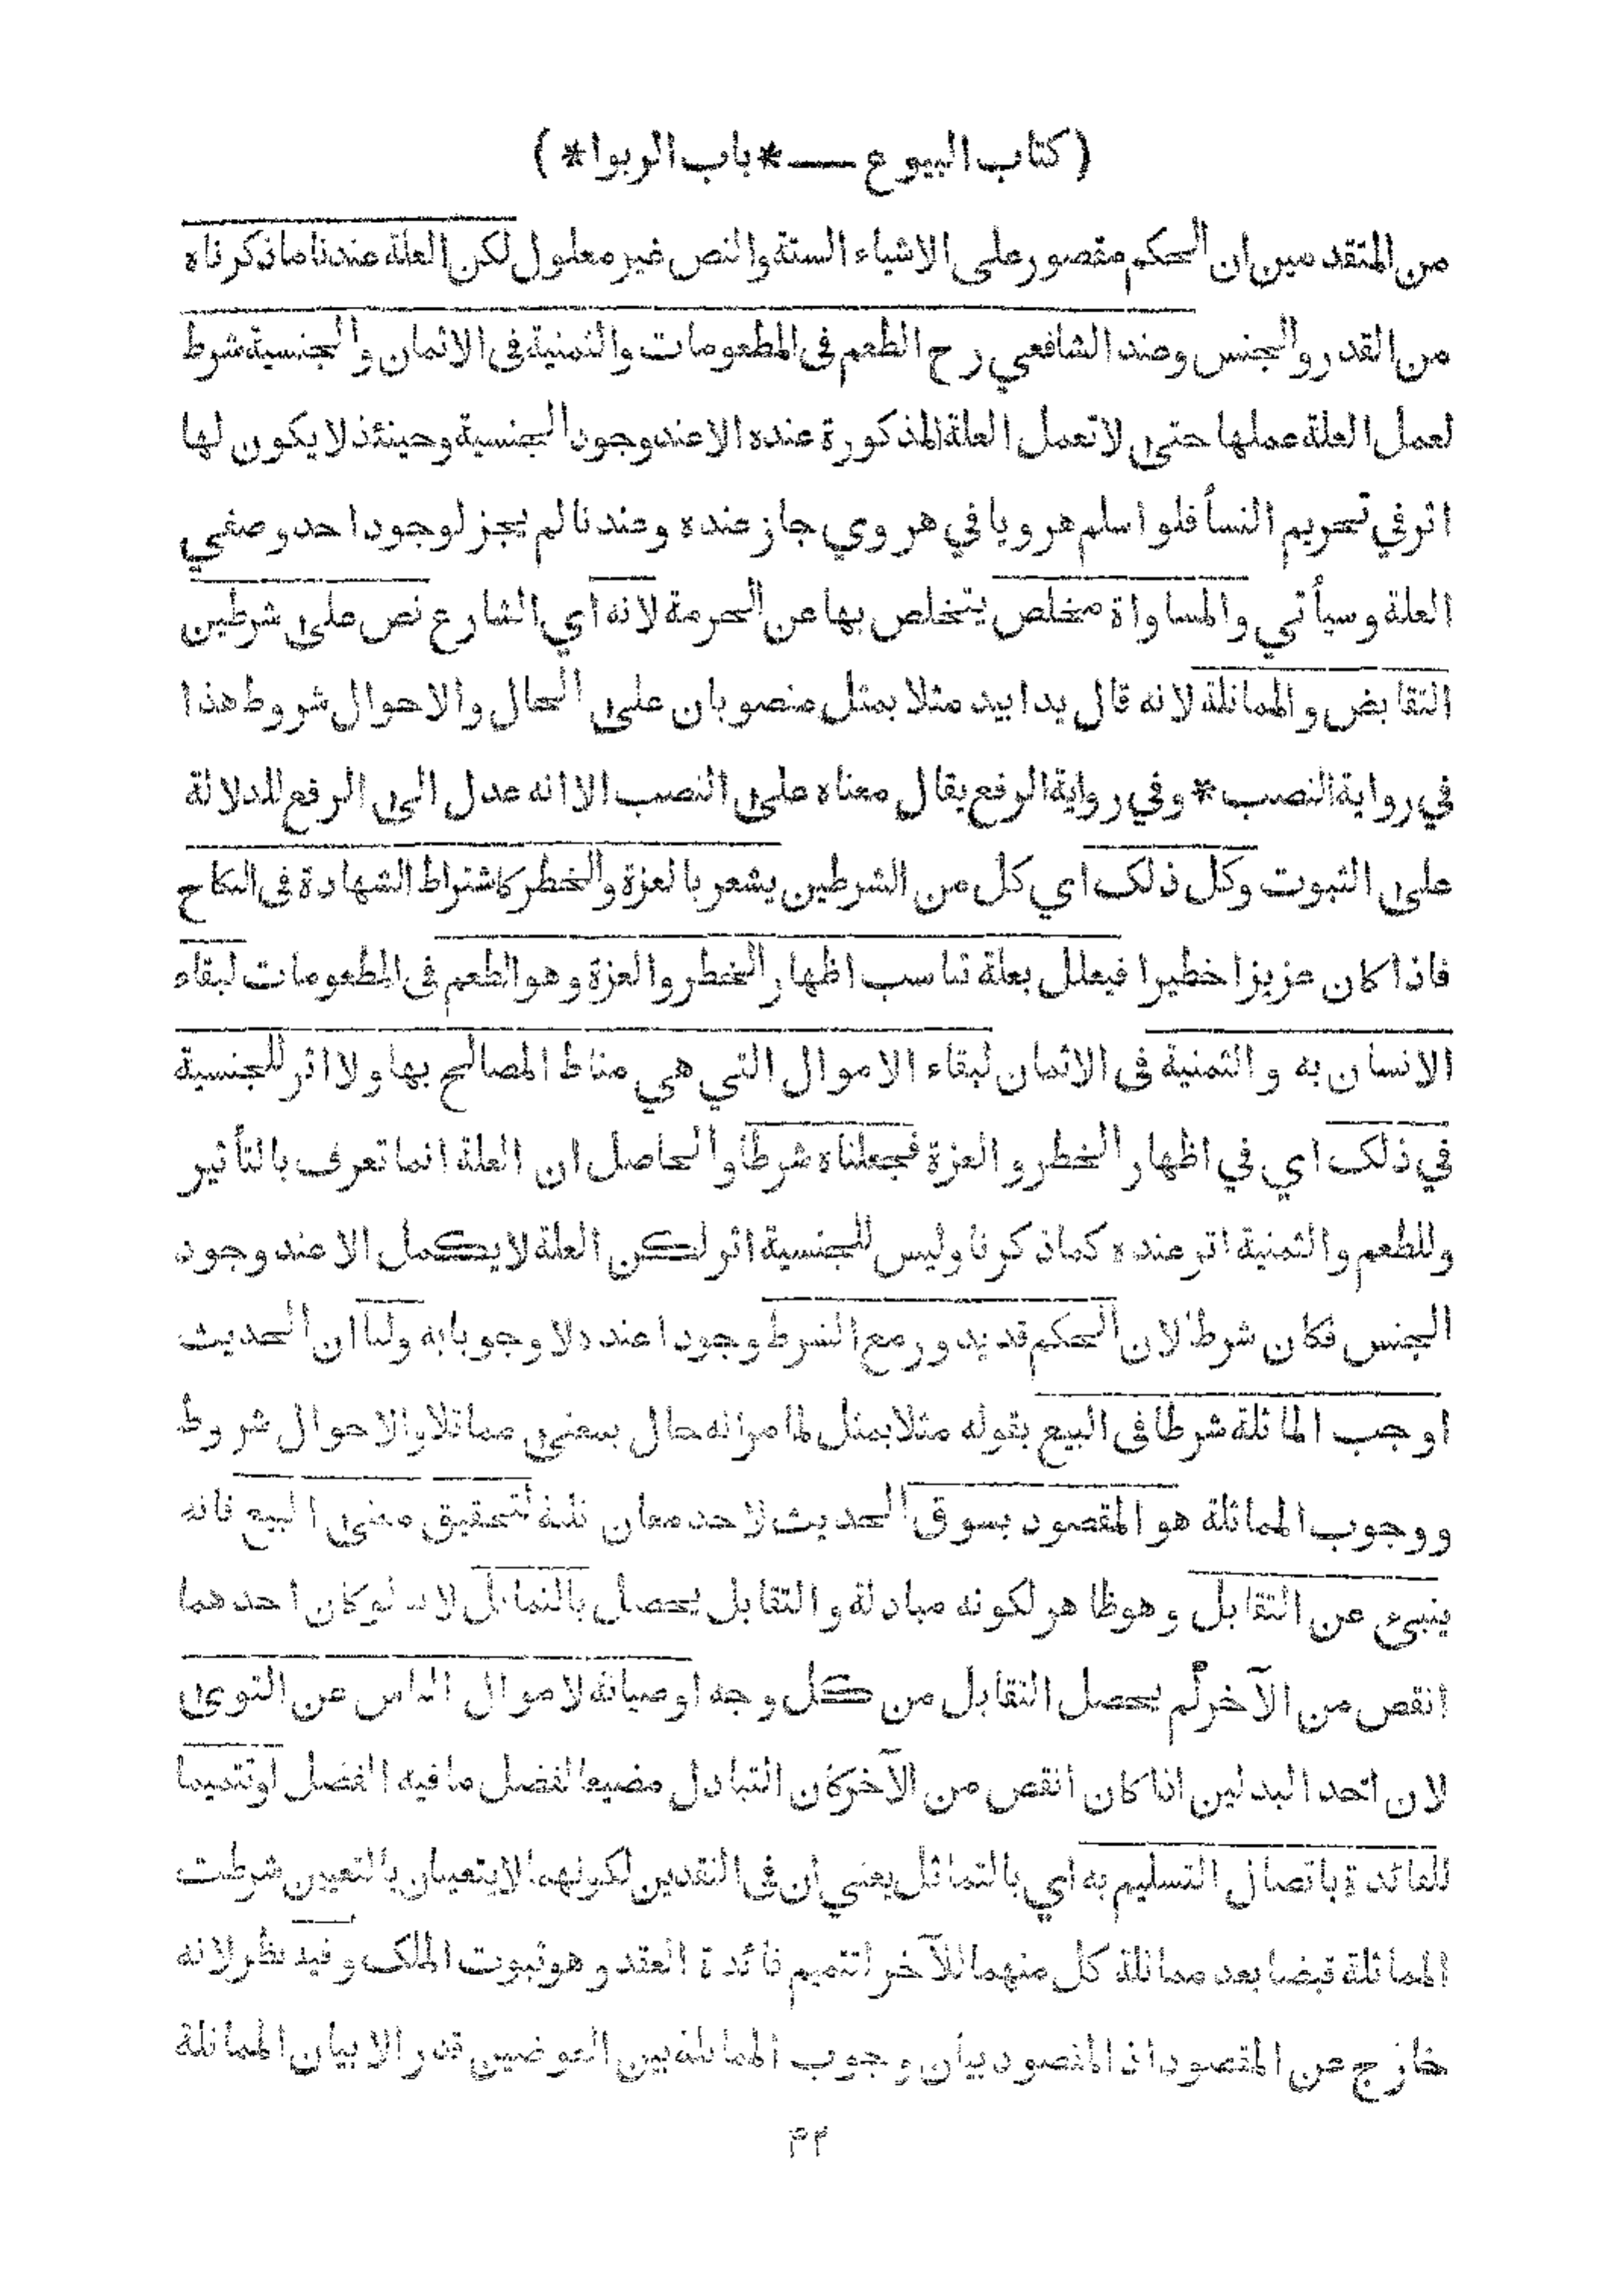 ( كتاب البيوع — * باب الربوا * )
من المتقدمين ان الحكم مقصور على الاشياء الستة والنص غير معلول لكن العلة عندنا ماذكرناه
من القدر والجنس وعند الشافعي رح الطعم فى المطعومات والثمنية فى الاثمان والجنسية شرط
لعمل العلة عملها حتى لا تعمل العلة المذكورة عنده الا عند وجود الجنسية وحينئذ لا يكون لها
اثر في تحريم النسأ فلو اسلم هرويا في هروي جاز عنده وعندنا لم يجز لوجود احد وصفي
العلة وسيأتي والمساواة مخلص يتخلص بها عن الحرمة لانه اي الشارع نص على شرطين
التقابض والمماثلة لانه قال يدا بيد مثلا بمثل منصوبان على الحال والاحوال شروط هذا
في رواية النصب * وفي رواية الرفع يقال معناه على النصب الا انه عدل الى الرفع للدلالة
على الثبوت وكل ذلك اي كل من الشرطين يشعر بالعزة والخطر كاشتراط الشهادة فى النكاح
فاذا كان عزيزا خطيرا فيعلل بعلة تناسب اظهار الخطر والعزة وهو الطعم فى المطعومات لبقاء
الانسان به والثمنية فى الاثمان لبقاء الاموال التي هي مناط المصالح بها ولا اثر للجنسية
في ذلك اي في اظهار الخطر والعزة فجعلناه شرطا والحاصل ان العلة انما تعرف بالتأثير
وللطعم والثمنية اثر عنده كماذكرنا وليس للجنسية اثر لكن العلة لا يكمل الا عند وجود
الجنس فكان شرطا لان الحكم قد يدور مع الشرط وجودا عنده لا وجوبا به ولنا ان الحديث
اوجب المماثلة شرطا فى البيع بقوله مثلا بمثل لما مر انه حال بمعنى مماثلا والاحوال شروط
ووجوب المماثلة هو المقصود بسوق الحديث لاحد معان ثلثة لتحقيق معنى البيع فانه
ينبئ عن التقابل وهو ظاهر لكونه مبادلة والتقابل يحصل بالتماثل لانه لو كان احدهما
انقص من الآخر لم يحصل التقابل من كل وجه او صيانة لاموال الناس عن التوى
لان احد البدلين اذا كان انقص من الآخر كان التبادل مضيعا لفضل ما فيه الفضل او تتميما
للفائدة باتصال التسليم به اي بالتماثل يعني ان فى النقدين لكونهما لا يتعينان بالتعيين شرطت
المماثلة قبضا بعد مماثلة كل منهما للآخر لتتميم فائدة العقد وهو ثبوت الملك وفيه نظر لانه
خارج عن المقصود اذ المقصود بيان وجوب المماثلة بين العوضين قدر الا بيان المماثلة